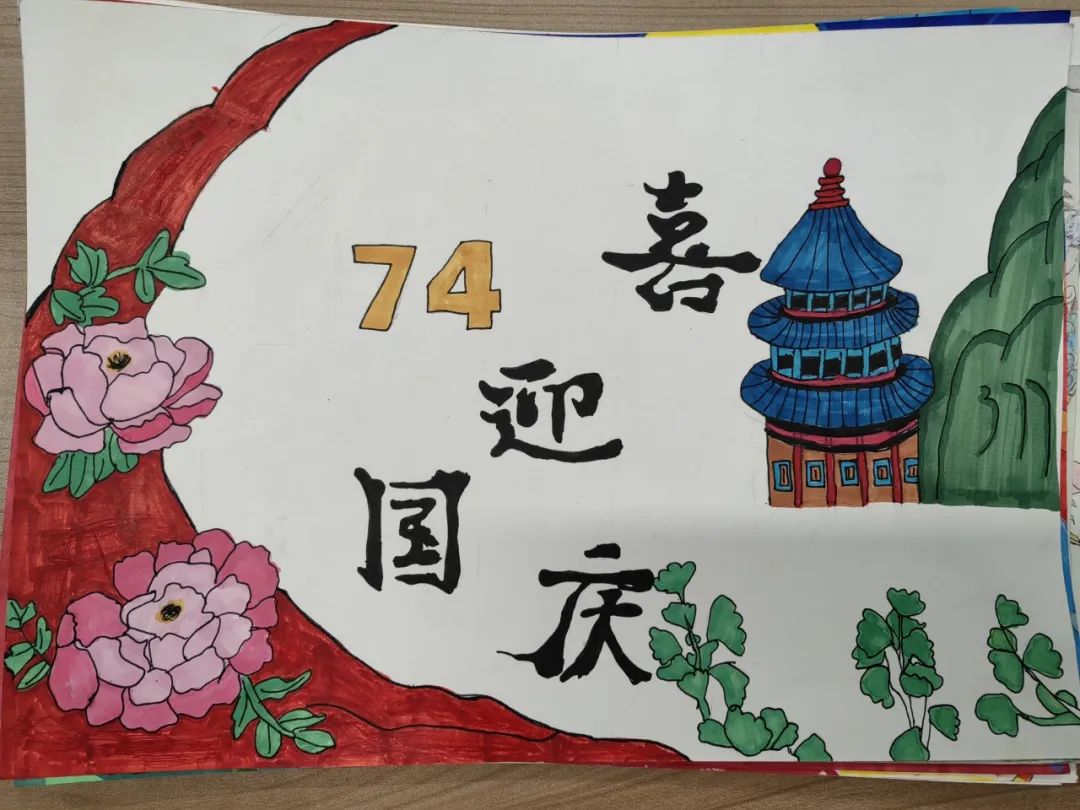 74
喜
迎
国
庆